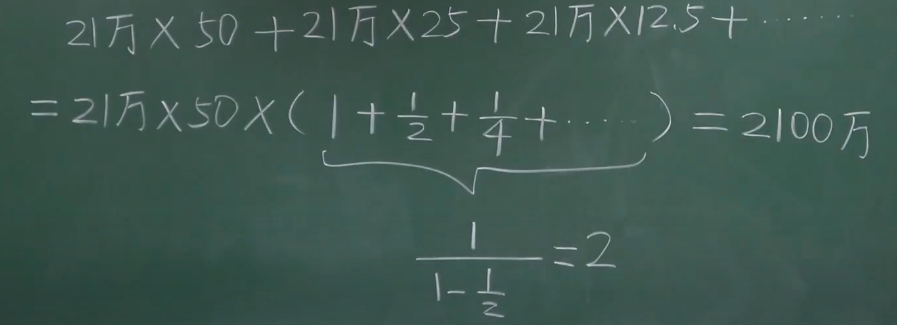 21万×50+21万×25+21万×12.5+……
=21万×50×(1+1/2+1/4+……)=2100万
1/(1-1/2)=2